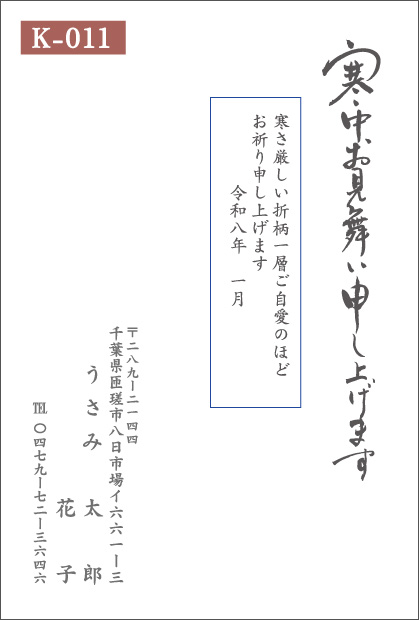 K-011
寒中お見舞い申し上げます
寒さ厳しい折柄一層ご自愛のほど
お祈り申し上げます
令和八年 一月
〒二八九ー二一四四
千葉県匝瑳市八日市場イ六六一ー三
うさみ 太郎
花子
℡ 〇四七九ー七二ー三六四六